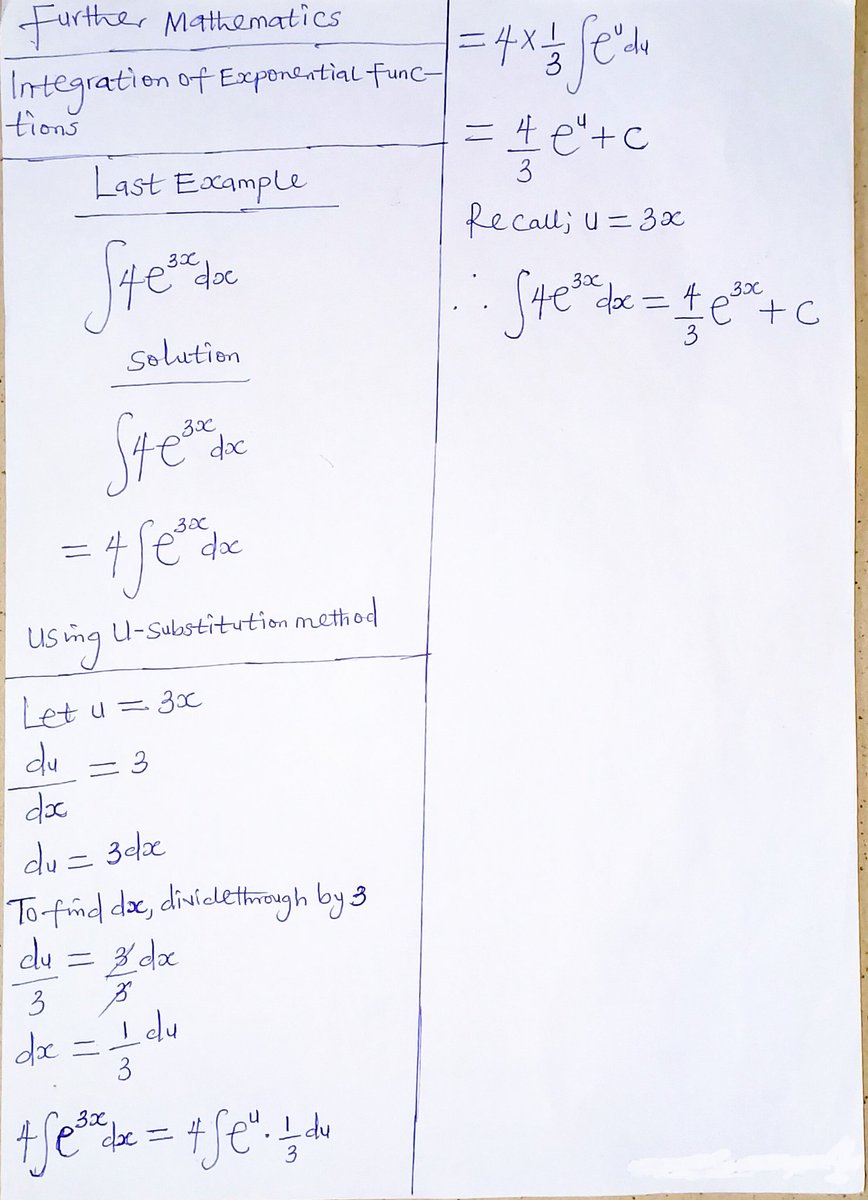 Further Mathematics
Integration of Exponential func-
tions
Last Example
∫4e^{3x}dx
solution
∫4e^{3x}dx
= 4∫e^{3x}dx
Using U-substitution method
Let u = 3x
du/dx = 3
du = 3dx
To find dx, divide through by 3
du/3 = 3/3 dx
dx = 1/3 du
4∫e^{3x}dx = 4∫e^u · 1/3 du
= 4 × 1/3 ∫e^u du
= 4/3 e^u + c
Recall; u = 3x
∴ ∫4e^{3x}dx = 4/3 e^{3x} + c